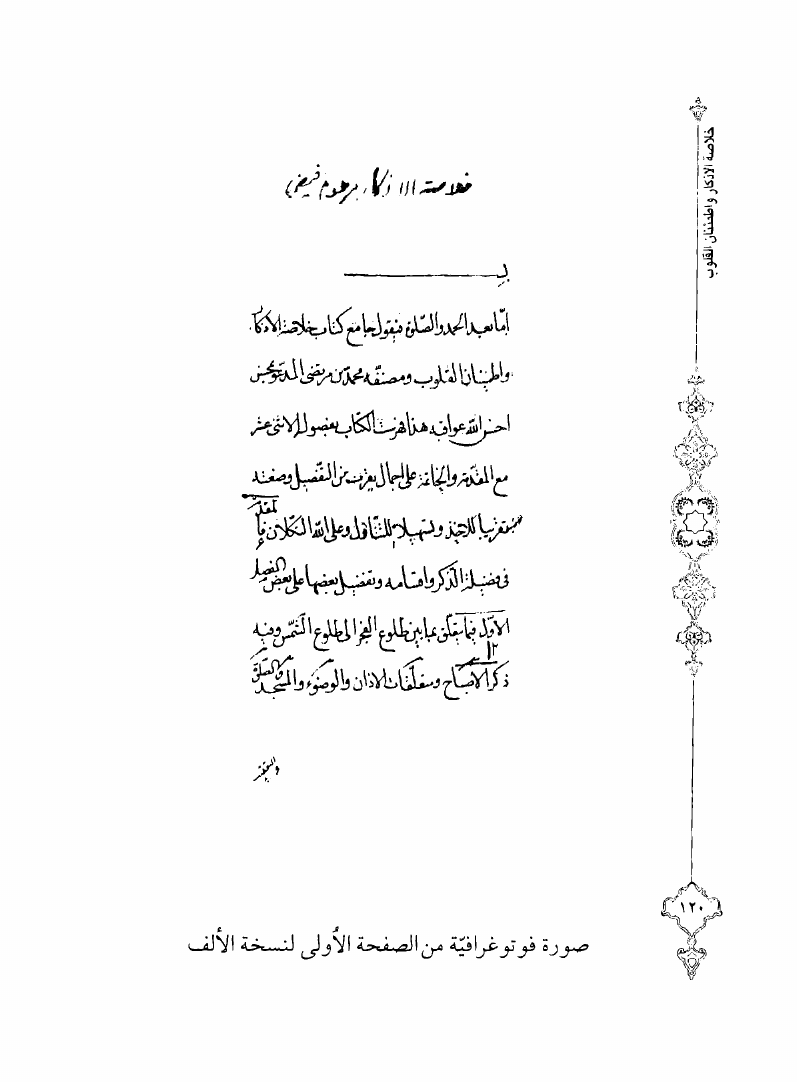 خلاصة الاذكار مرحوم فيض
خلاصة الاذكار واطمئنان القلوب
امّا بعد الحمد والصّلوة فيقول جامع كتاب خلاصة الاذكار
واطمينان القلوب ومصنفه محمّد بن مرتضى المدعو بمحسن
احسن الله عواقبه هذا فهرست الكتاب بفصوله الاثنى عشر
مع المقدّمة والخاتمة على اجمال يعزب عن التّفصيل وضعته
تقريبا للاخذ وتسهيلا للتّناول وعلى الله التكلان
المقدّمة
فى فضيلة الذّكر واقسامه وتفضيل بعضها على بعض الفصل
الاوّل فيما يتعلّق بما بين طلوع الفجر الى طلوع الشّمس وفيه
١٢
ذكر الاصباح ومتعلّقات الاذان والوضوء والمسجد والصّلوة
والتعقيب
١٢٠
صورة فوتوغرافيّة من الصفحة الأُولى لنسخة الألف